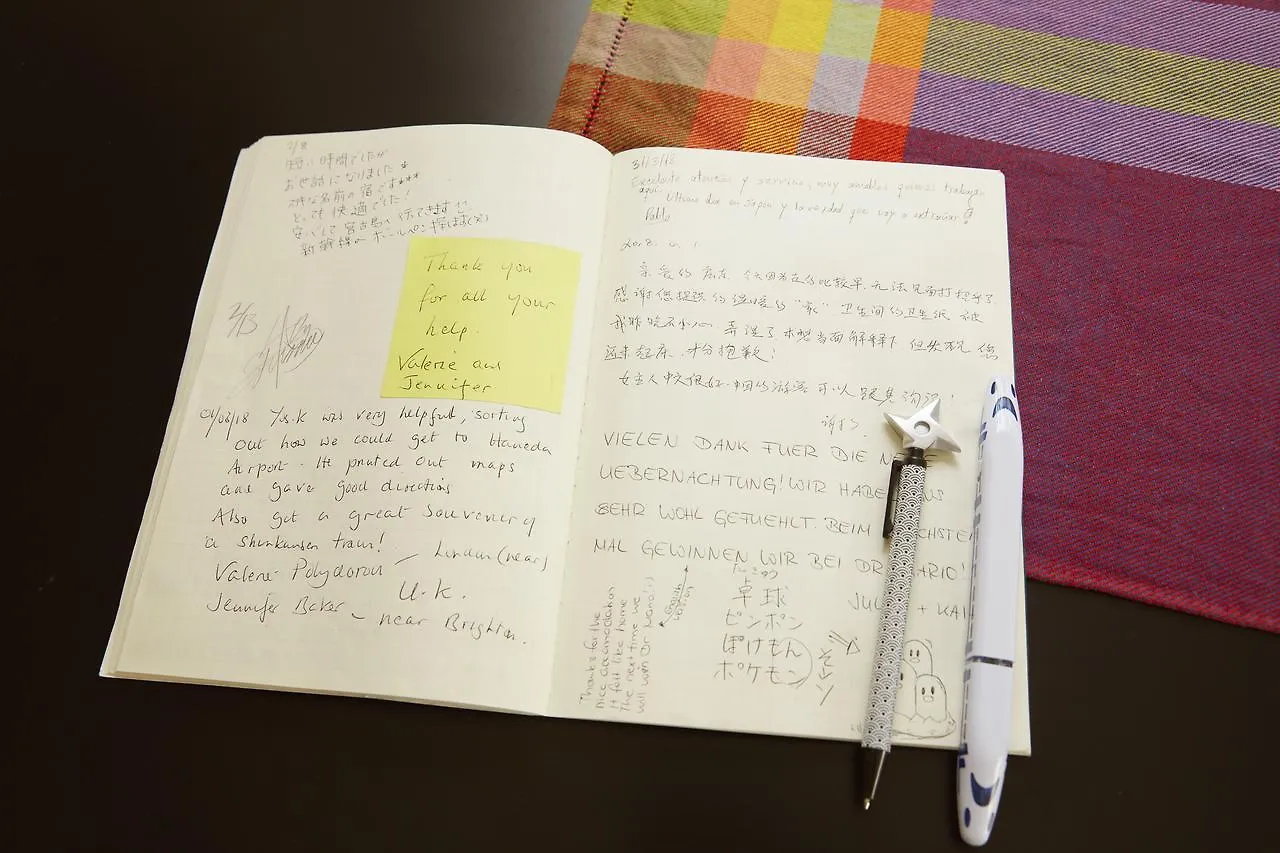 2/8
短い時間でしたが
お世話になりました
な名前の宿です***
とっても快適でした!
安心して宮古島へ行てきます
新幹線のボールペン
Thank you
for all your
help.
Valerie and
Jennifer
2/3
01/08/18 Yus.k was very helpful, sorting
out how we could get to Haneda
Airport. He printed out maps
and gave good directions
Also got a great souvenir of
a Shinkansen train!
Valerie Polydorou — London (near)
Jennifer Baker – near Brighton.
U.K.
31/3/18
Excelente atencion y servicio, muy amables quienes trabajan
aquí. Ultimo dia en Japon y la verdad que voy a extrañar
Pablo
2018.
亲爱的房东 今天因为 比较早, 无法见面打招乎了
感谢您提供的温暖的“家” 卫生间的卫生纸 被
我昨晚不小心 弄湿了 本想当面解释下 但发现 您
还未起床, 十分抱歉!
女主人中文很好, 中国的游客 可以
谢谢
VIELEN DANK FUER DIE
UEBERNACHTUNG! WIR HABE
SEHR WOHL GEFUEHLT. BEIM
MAL GEWINNEN WIR BEI DR
JUL + KAI
English version
Thanks for the
nice accomodation
It felt like home
The next time we
will win Dr Mario!:)
たっきゅう
卓球
ピンポン
ぽけもん
ポケモン